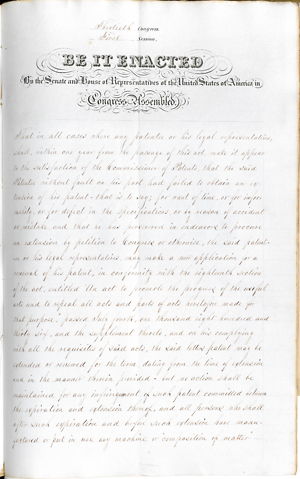 Thirtieth Congress
First Session
BE IT ENACTED
By the Senate and House of Representatives of the United States of America in
Congress Assembled,
That in all cases where any patentee or his legal representatives,
shall, within one year from the passage of this act, make it appear
to the satisfaction of the Commissioner of Patents, that the said
Patentee without fault on his part had failed to obtain an ex
tension of his patent - that is to say; for want of time, or for infor
mality, or for defect in the specifications, or by reason of accident
or mistake, and that he has persevered in endeavors to procure
an extension by petition to Congress or otherwise, the said patent-
ee or his legal representatives, may make a new application for a
renewal of his patent, in conformity with the eighteenth section
of the act, entitled An act to promote the progress of the useful
arts and to repeal all acts and parts of acts heretofore made for
that purpose," passed July fourth, one thousand eight hundred and
thirty six, and the supplement thereto, and on his complying
with all the requisites of said acts, the said letters patent may be
extended or renewed for the term dating from the time of extension
and in the manner therein provided - but no action shall be
maintained for any infringement of such patent committed between
the expiration and extension thereof, and all persons who shall
after such expiration and before such extension have manu-
factured or put in use any machine or composition of matter